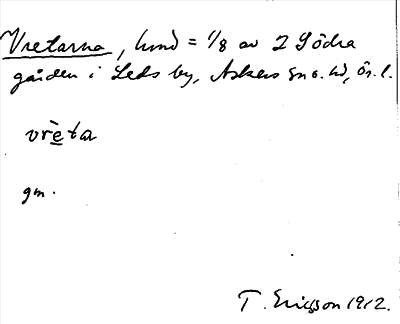 Vretarna, hmd = 1/8 av 2 Södra
gården i Leds by, Askers sn o. hd, Ör. l.
vrèta
gm.
T. Ericsson 1912.